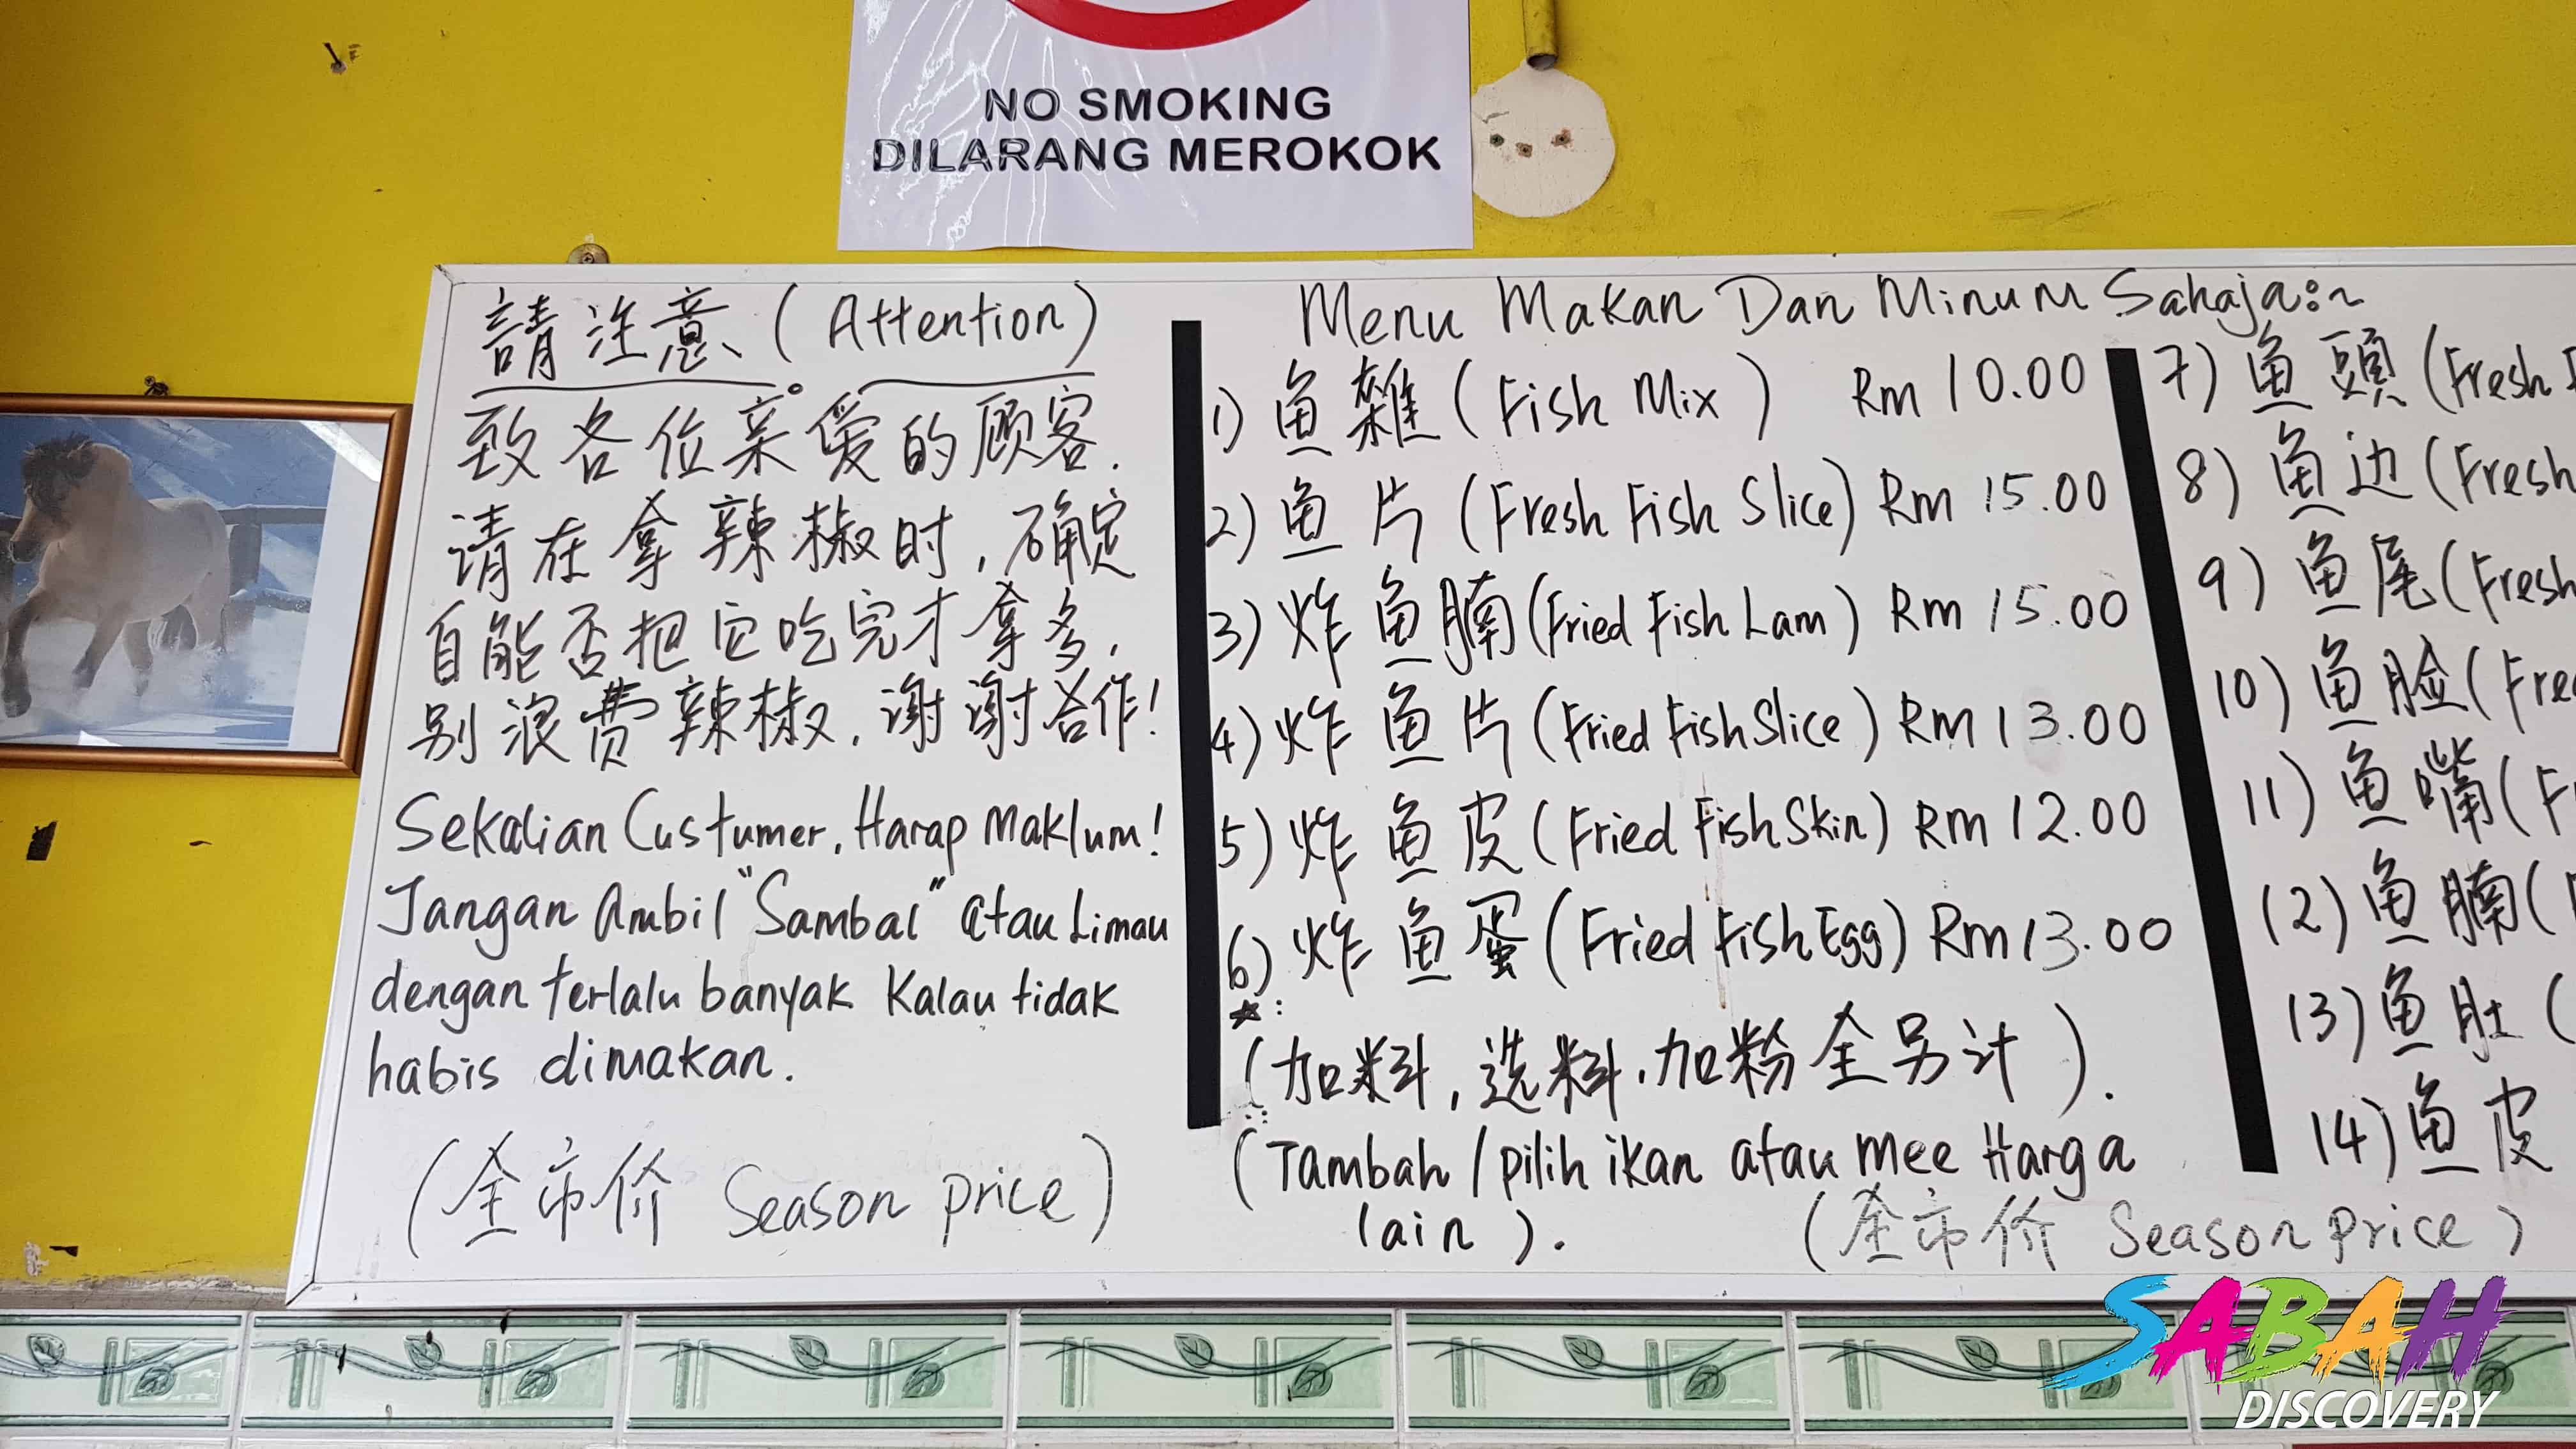 NO SMOKING
DILARANG MEROKOK
請注意 (Attention)
致各位亲爱的顾客.
请在拿辣椒时, 确定
自能否把它吃完才拿多,
别浪费辣椒, 谢谢合作!
Sekalian Custumer, Harap Maklum!
Jangan Ambil "Sambal" atau Limau
dengan terlalu banyak Kalau tidak
habis dimakan.
(全市价 Season price)
Menu Makan Dan Minum Sahaja:~
1) 鱼雜 (Fish Mix) Rm 10.00
2) 鱼片 (Fresh Fish Slice) Rm 15.00
3) 炸鱼腩 (Fried Fish Lam) Rm 15.00
4) 炸鱼片 (Fried Fish Slice) Rm 13.00
5) 炸鱼皮 (Fried Fish Skin) Rm 12.00
6) 炸鱼蛋 (Fried Fish Egg) Rm 13.00
☆:
(加料, 选料, 加粉全另计).
(Tambah / pilih ikan atau mee Harga
lain).
(全市价 Season Price)
7) 鱼頭 (Fresh
8) 鱼边 (Fresh
9) 鱼尾 (Fresh
10) 鱼脸 (Fre
11) 鱼嘴 (F
12) 鱼腩 (
13) 鱼肚 (
14) 鱼皮
SABAH
DISCOVERY